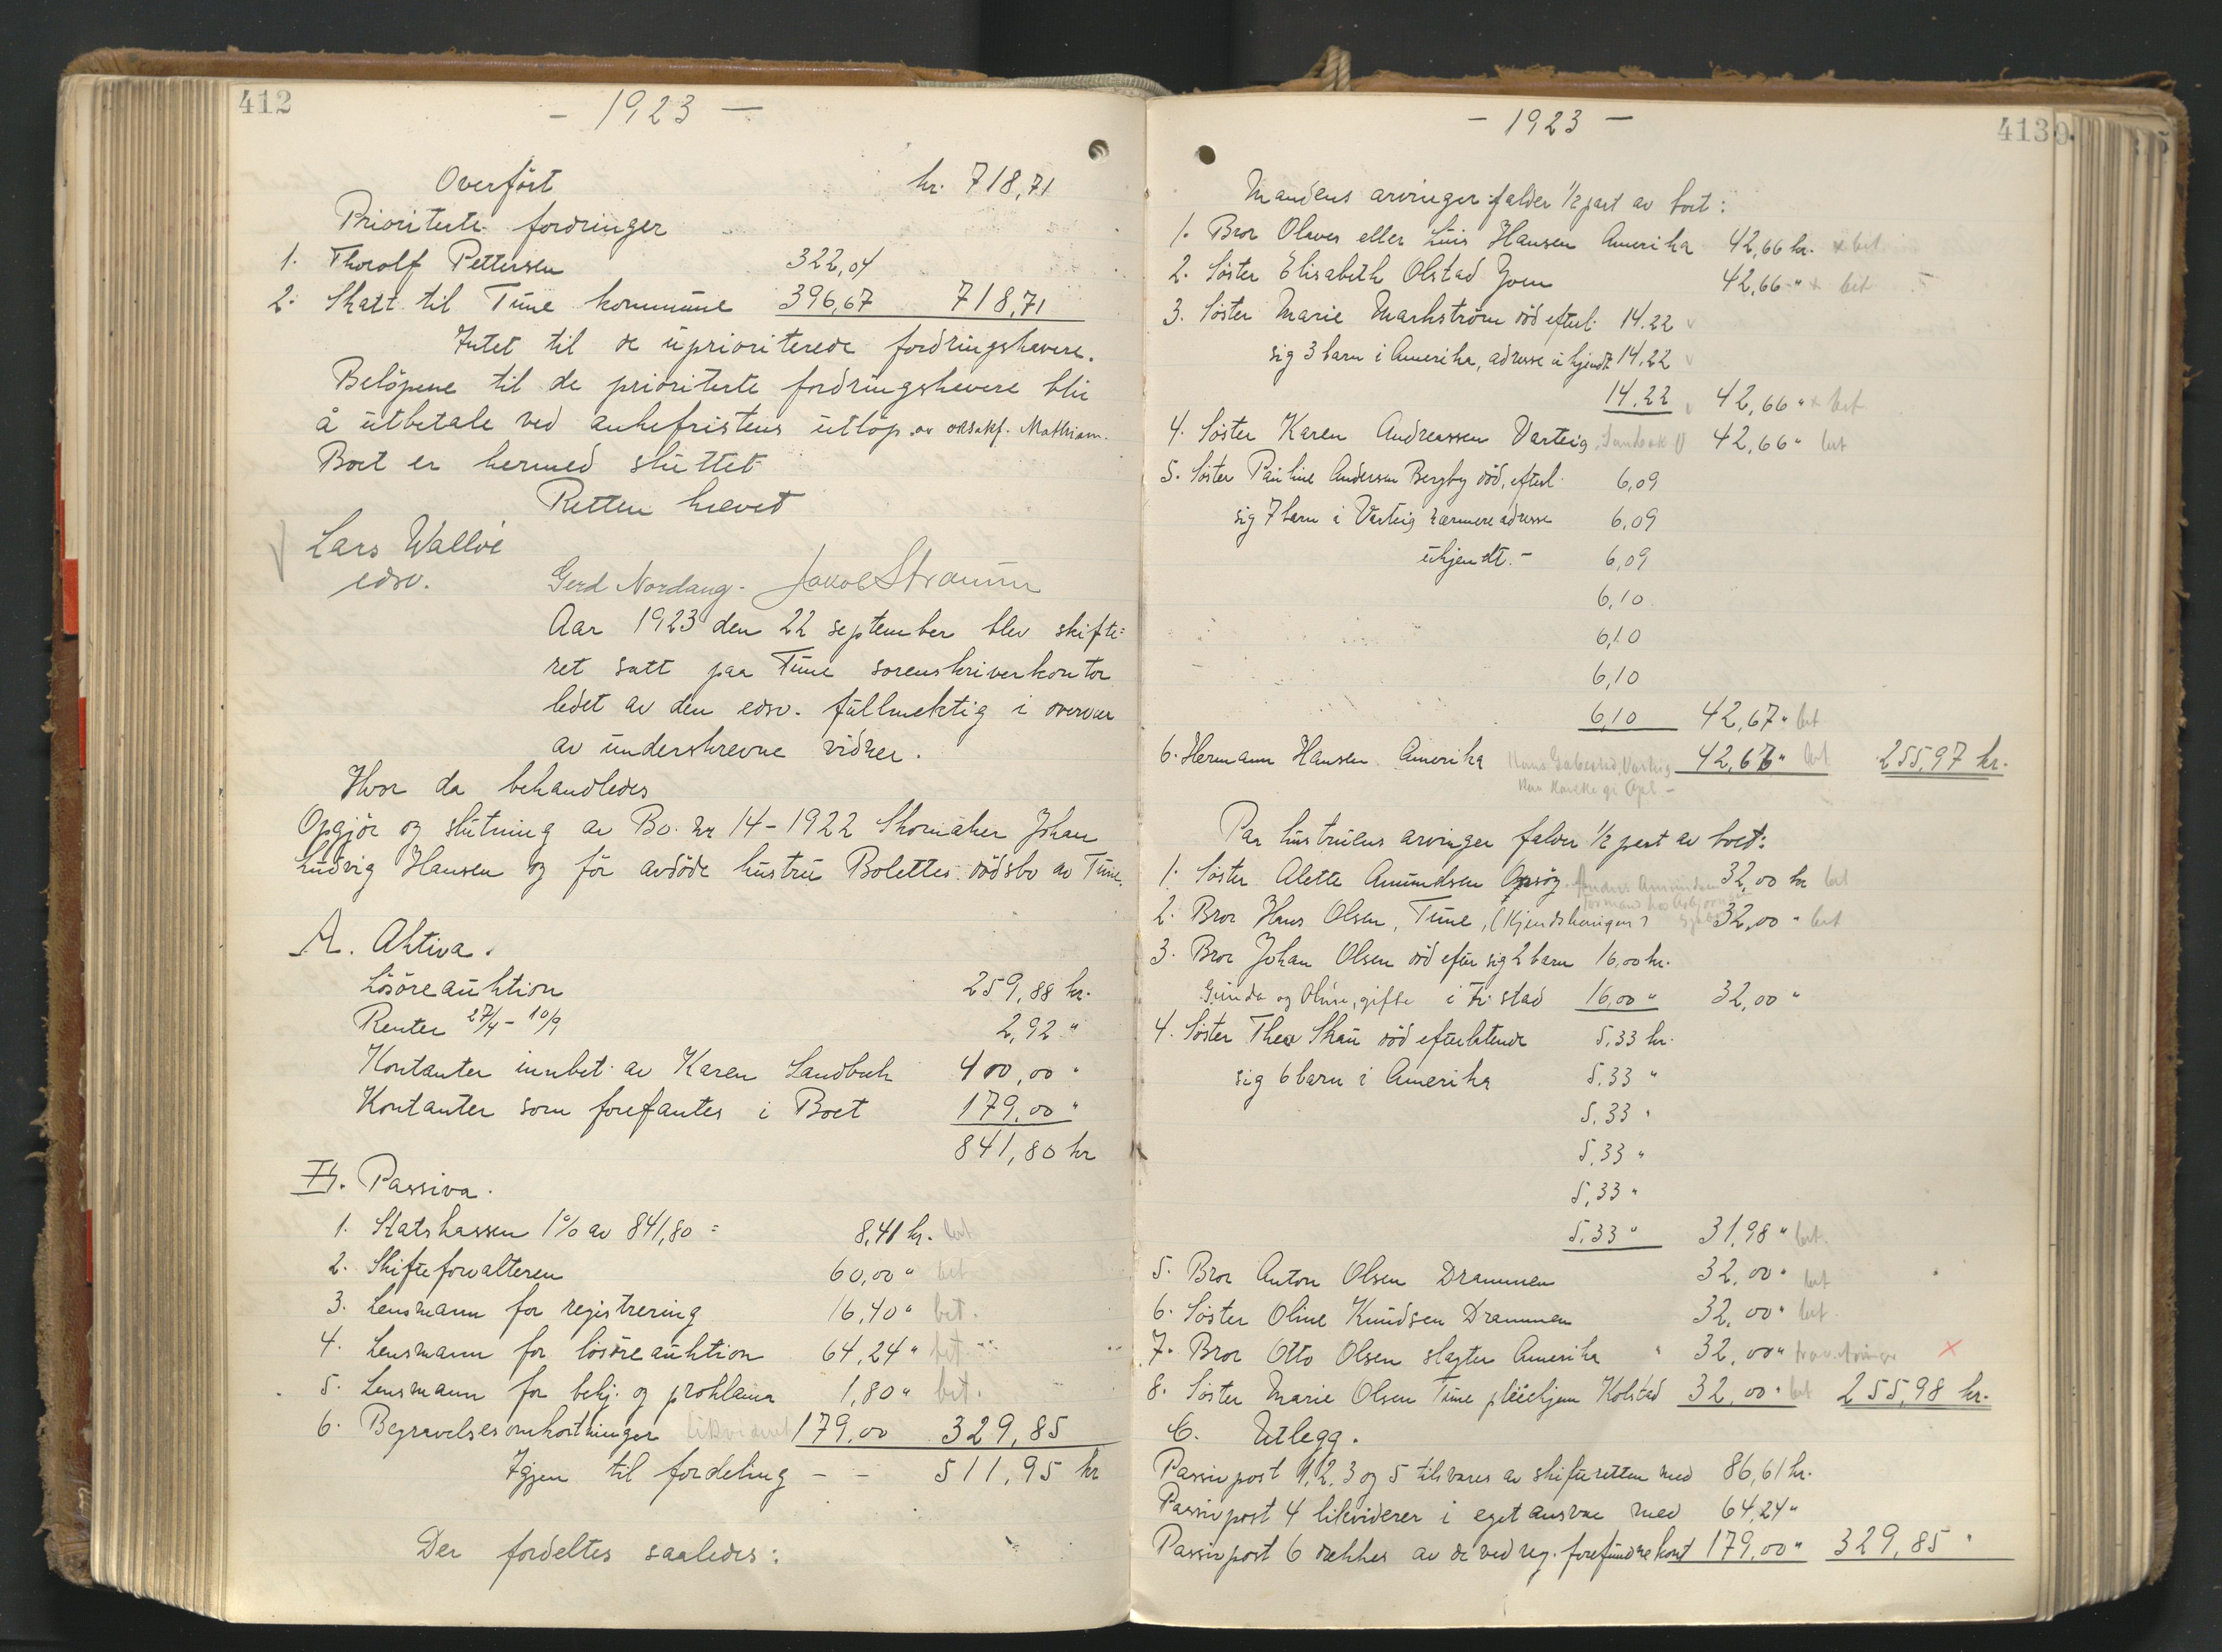 412
- 1923 -
Overført kr. 718,71
Prioriterte fordringer
1. Thorolf Pettersen 322,04
2. Skatt til Tune kommune 396,67 718,71
Intet til de uprioriterede fordringshavere.
Beløpene til de prioriterte fordringshavere blir
å utbetale ved ankefristens utløp av
Boet er hermed sluttet
Retten hævet
Lars Walløe
edsv.
Gerd Nordaug. Jakob Straum
Aar 1923 den 22 september blev skifte=
ret satt paa Tune sorenskriverkontor
ledet av den edsv. fullmektig i overvær
av underskrevne vidner.
Hvor da behandledes
Opgjør og slutning av Bo. nr 14-1922 Skomaker Johan
Ludvig Hansen og før avdøde hustru Bolettes dødsbo av Tune.
A. Aktiva.
Løsøreauktion 259,88 kr.
Renter 27/4 - 10/9 2,92 "
Kontanter innbet. av Karen Sandbæk 400,00 "
Kontanter som forefantes i Boet 179,00 "
841,80 kr
B. Passiva.
1. Statskassen 1% av 841,80 = 8,41 kr. bet
2. Skifteforvalteren 60,00 " bet
3. Lensmann for registrering 16,40 " bet.
4. Lensmann for løsøreauktion 64,24 " bet
5. Lensmann for bekj. og proklama 1,80 " bet.
6. Begravelsesomkostninger likvidert 179,00 329,85
Igjen til fordeling - - 511,95 kr
Der fordeltes saaledes:
4139
- 1923 -
Mandens arvinger falder 1/2 part av boet:
1. Bror Olaves eller Luis Hansen Amerika 42,66 kr. x bet
2. Søster Elisabeth Olstad Joen 42,66 " x bet
3. Søster Marie Markstrøm død efterl. 14.22 v
sig 3 barn i Amerika, adresse ukjendt 14.22 v
14.22 v 42,66 " x bet
4. Søster Karen Andreassen Varteig, Sandbæk 42,66 " bet
5. Søster Pauline Andersen Bergby død, efterl. 6,09
sig 7 barn i Varteig nærmere adresse 6,09
ukjendt. - 6,09
6,10
6,10
6,10
6,10 42,67 " bet
6. Hermann Hansen Amerika 42,67 " bet 255,97 kr.
Paa hustruens arvinger falder 1/2 part av boet:
1. Søster Alette Amundsen Opsøy Anders Amundsen 32,00 kr bet
2. Bror Hans Olsen, Tune, 32,00 " bet
3. Bror Johan Olsen død efter sig 2 barn 16,00 kr.
Gunda og Oline, gifte i Fr.stad 16,00 " 32,00 "
4. Søster Thea Skau død efterlatende 5,33 kr.
sig 6 barn i Amerika 5,33 "
5,33 "
5,33 "
5,33 "
5,33 " 31,98 " bet.
5. Bror Anton Olsen Drammen 32,00 " bet
6. Søster Oline Knudsen Drammen 32,00 " bet
7. Bror Otto Olsen slagter Amerika 32,00 " x
8. Søster Marie Olsen Tune pleiehjem Kolstad 32,00 " bet 255,98 kr.
C. Utlegg.
Passivpost 1, 2, 3 og 5 tilsvares av skifteretten med 86,61 kr.
Passivpost 4 likviderer i eget ansvar med 64,24 "
Passivpost 6 dekkes av de ved reg. forefundne kont 179,00 " 329,85 "